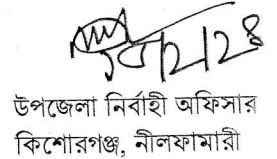 উপজেলা নির্বাহী অফিসার
কিশোরগঞ্জ, নীলফামারী